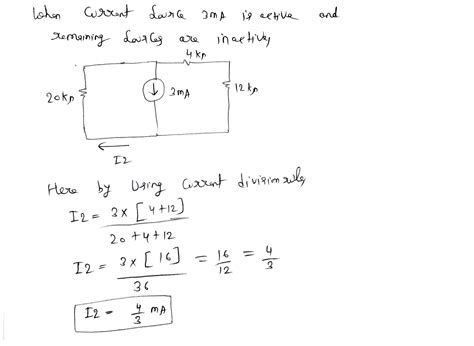 When Current Source 3mA is active and
remaining sources are inactive,
4kΩ
20kΩ
3mA
12kΩ
I2
Here by Using Current division rule,
I2 = 3 x [4+12]
20+4+12
I2 = 3 x [16] = 16 = 4
36 12 3
I2 = 4 mA
3